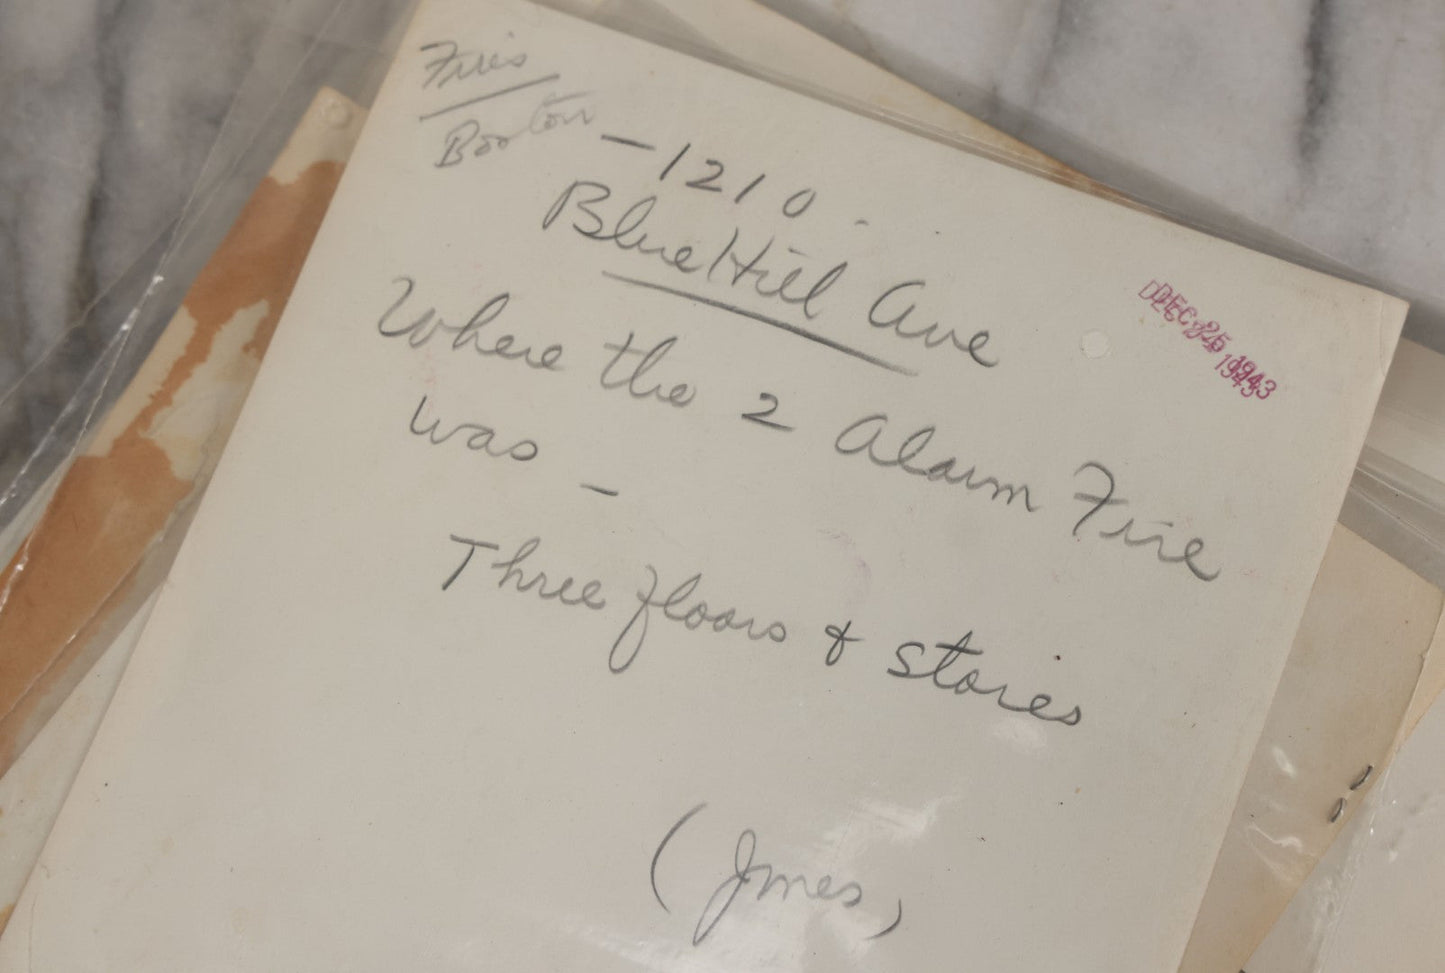 Fires
Boston
- 1210.
Blue Hill Ave
Where the 2 Alarm Fire
was -
Three floors & stores
(Jones)
DEC 25 1943